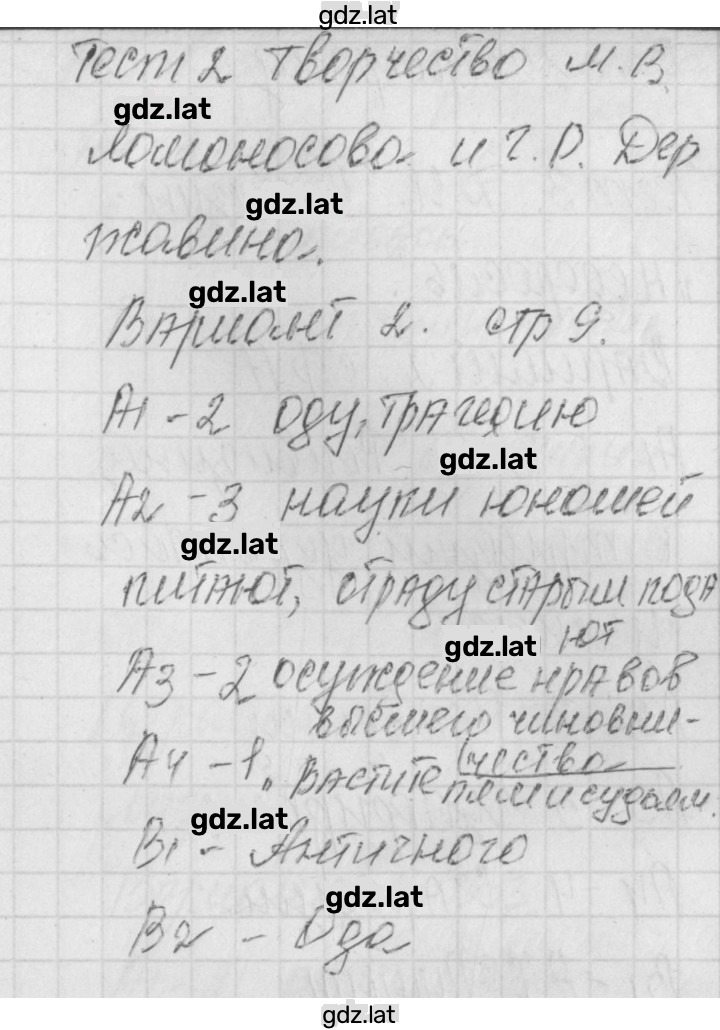 gdz.lat
Тест 2 Творчество М. В.
gdz.lat
Ломоносова и Г. Р. Дер
gdz.lat
жавина.
gdz.lat
Вариант 2. стр 9.
А1 - 2 оду, трагедию
gdz.lat
А2 - 3 науки юношей
gdz.lat
питают, отраду старым пода
gdz.lat ют
А3 - 2 осуждение нравов
высшего чиновни-
А4 - 1 (чества
"Властите
лям и судьям".
gdz.lat
В1 - Античного
gdz.lat
В2 - Ода
gdz.lat